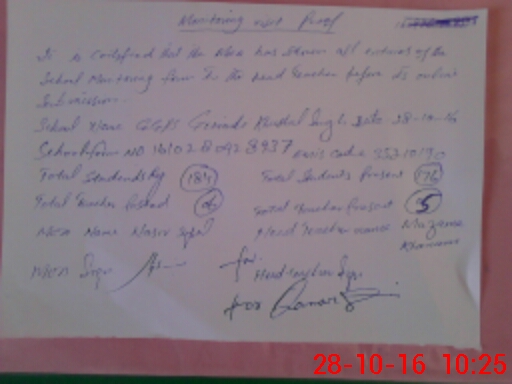 Monitoring visit Proof
It is certified that the MEA has shown all entries of the
School Monitoring form to the head Teacher before its online
Submission.
School Name GGPS Gobinda Khushal Singh Date 28-10-16
School form NO 161028092 8937 emis code 35310190
Total Students Reg 184 Total Students Present 176
Total Teacher Posted 06 Total Teacher Present 5
MEA Name Nasir Iqbal Head Teacher name
MEA Sign for Head teacher Sign
for
28-10-16 10:25